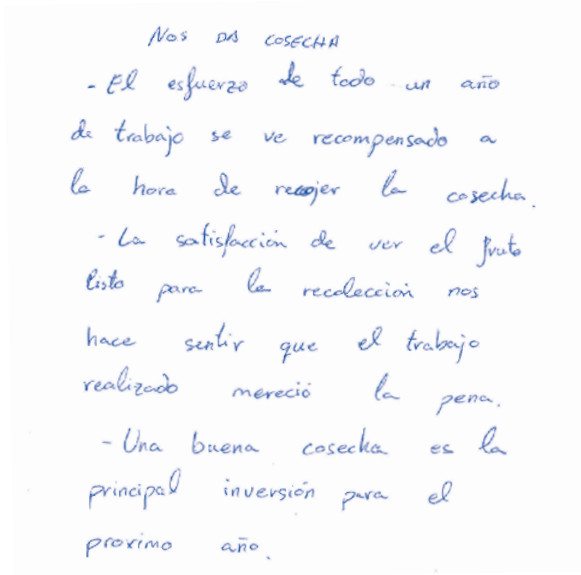 NOS DA COSECHA
- El esfuerzo de todo un año
de trabajo se ve recompensado a
la hora de recojer la cosecha.
- La satisfacción de ver el fruto
listo para la recolección nos
hace sentir que el trabajo
realizado mereció la pena.
- Una buena cosecha es la
principal inversión para el
proximo año.